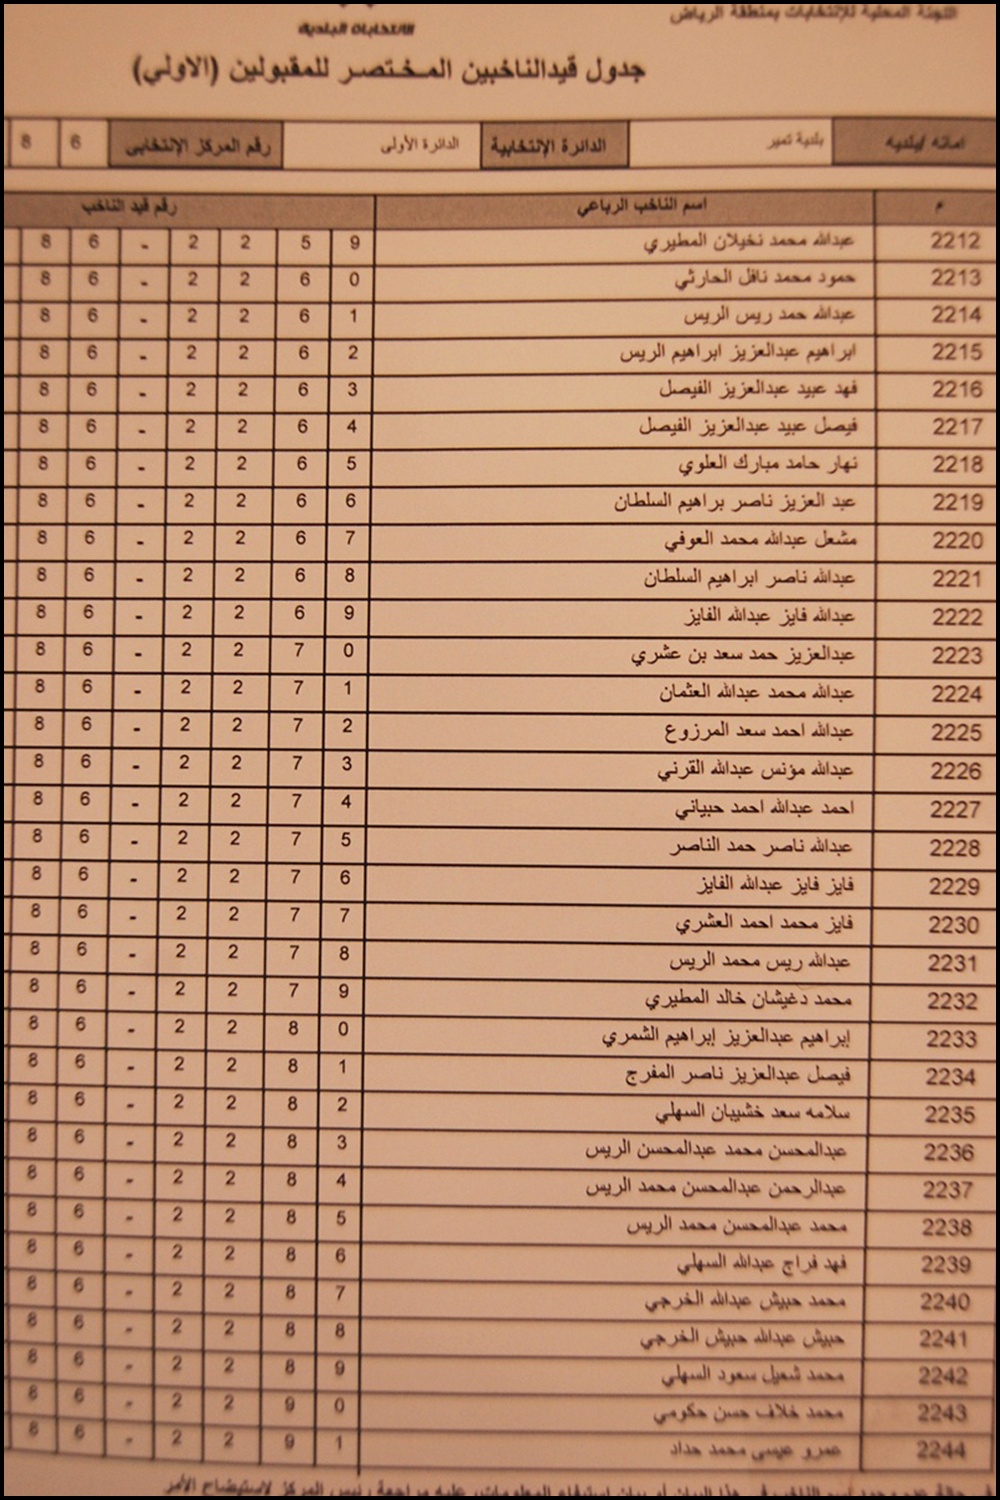 اللجنة المحلية للإنتخابات بمنطقة الرياض
الانتخابات البلدية
جدول قيدالناخبين المختصر للمقبولين (الاولي)
امانه /بلديه بلدية تمير الدائرة الإنتخابية الدائرة الأولى رقم المركز الإنتخابى 6 8
م اسم الناخب الرباعي رقم قيد الناخب
2212 عبدالله محمد نخيلان المطيري 9 5 2 2 - 6 8
2213 حمود محمد نافل الحارثي 0 6 2 2 - 6 8
2214 عبدالله حمد ريس الريس 1 6 2 2 - 6 8
2215 ابراهيم عبدالعزيز ابراهيم الريس 2 6 2 2 - 6 8
2216 فهد عبيد عبدالعزيز الفيصل 3 6 2 2 - 6 8
2217 فيصل عبيد عبدالعزيز الفيصل 4 6 2 2 - 6 8
2218 نهار حامد مبارك العلوي 5 6 2 2 - 6 8
2219 عبد العزيز ناصر براهيم السلطان 6 6 2 2 - 6 8
2220 مشعل عبدالله محمد العوفي 7 6 2 2 - 6 8
2221 عبدالله ناصر ابراهيم السلطان 8 6 2 2 - 6 8
2222 عبدالله فايز عبدالله الفايز 9 6 2 2 - 6 8
2223 عبدالعزيز حمد سعد بن عشري 0 7 2 2 - 6 8
2224 عبدالله محمد عبدالله العثمان 1 7 2 2 - 6 8
2225 عبدالله احمد سعد المرزوع 2 7 2 2 - 6 8
2226 عبدالله مؤنس عبدالله القرني 3 7 2 2 - 6 8
2227 احمد عبدالله احمد حبياني 4 7 2 2 - 6 8
2228 عبدالله ناصر حمد الناصر 5 7 2 2 - 6 8
2229 فايز فايز عبدالله الفايز 6 7 2 2 - 6 8
2230 فايز محمد احمد العشري 7 7 2 2 - 6 8
2231 عبدالله ريس محمد الريس 8 7 2 2 - 6 8
2232 محمد دغيشان خالد المطيري 9 7 2 2 - 6 8
2233 إبراهيم عبدالعزيز إبراهيم الشمري 0 8 2 2 - 6 8
2234 فيصل عبدالعزيز ناصر المفرج 1 8 2 2 - 6 8
2235 سلامه سعد خشيبان السهلي 2 8 2 2 - 6 8
2236 عبدالمحسن محمد عبدالمحسن الريس 3 8 2 2 - 6 8
2237 عبدالرحمن عبدالمحسن محمد الريس 4 8 2 2 - 6 8
2238 محمد عبدالمحسن محمد الريس 5 8 2 2 - 6 8
2239 فهد فراج عبدالله السهلي 6 8 2 2 - 6 8
2240 محمد حبيش عبدالله الخرجي 7 8 2 2 - 6 8
2241 حبيش عبدالله حبيش الخرجي 8 8 2 2 - 6 8
2242 محمد شعيل سعود السهلي 9 8 2 2 - 6 8
2243 محمد خلاف حسن حكومي 0 9 2 2 - 6 8
2244 عمرو عيسى محمد حداد 1 9 2 2 - 6 8
في حالة عدم وجود اسم الناخب في هذا البيان أو بيان استيفاء المعلومات، عليه مراجعة رئيس المركز لاستيضاح الأمر